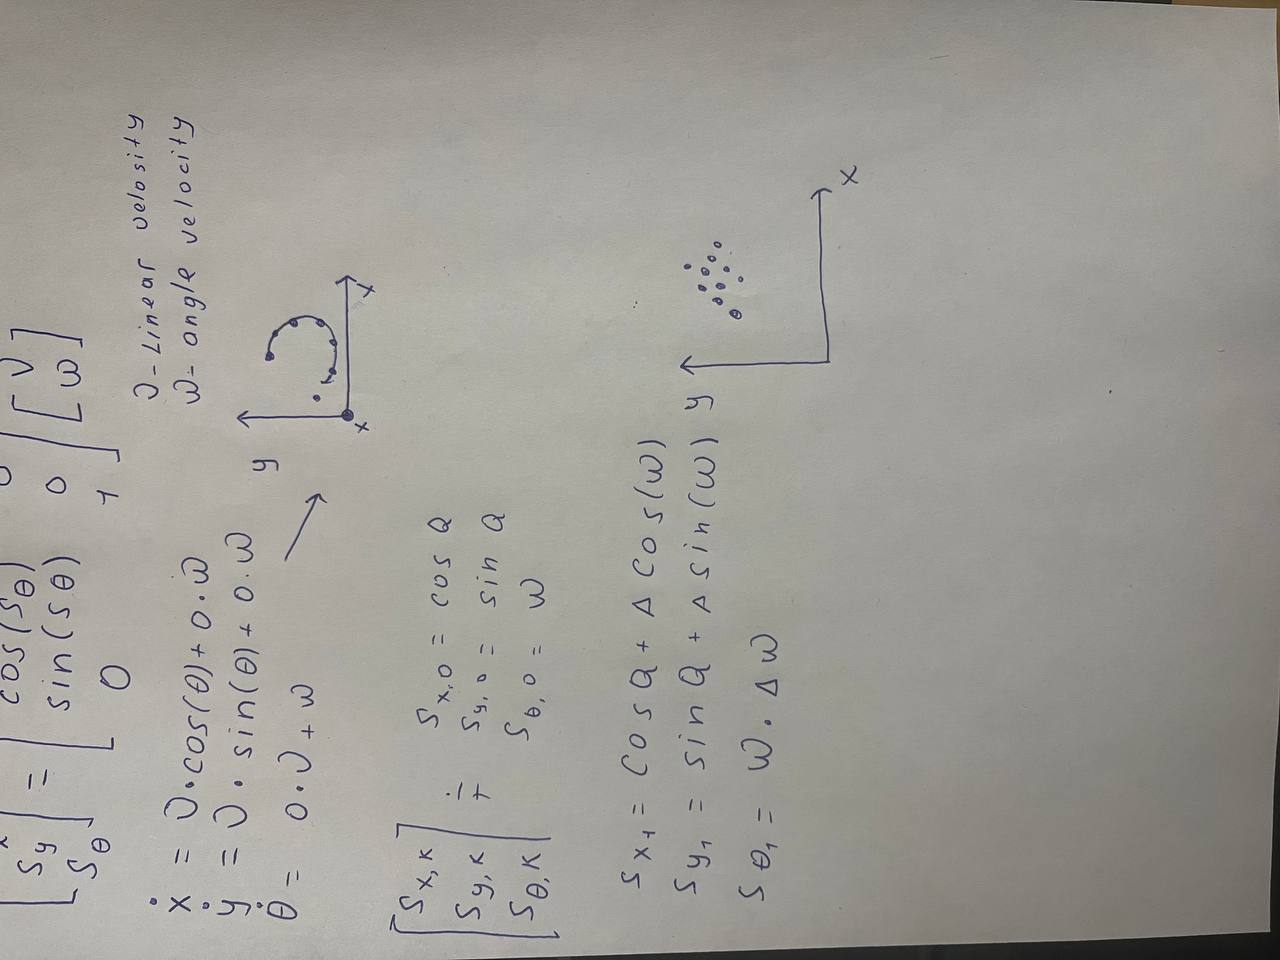 [Sy] = [cos(Sθ) 0] [V]
[Sθ] [sin(Sθ) 0] [ω]
[0 1]
υ - Linear velosity
ω - angle velocity
ẋ = υ · cos(θ) + 0 · ω
ẏ = υ · sin(θ) + 0 · ω
θ̇ = 0 · υ + ω
y
x
x
[Sx,K]
[Sy,K]
[Sθ,K]
Sx,0 = cos Q
Sy,0 = sin Q
Sθ,0 = ω
Sx1 = cos Q + Δ cos(ω)
Sy1 = sin Q + Δ sin(ω)
Sθ1 = ω · Δω
y
x